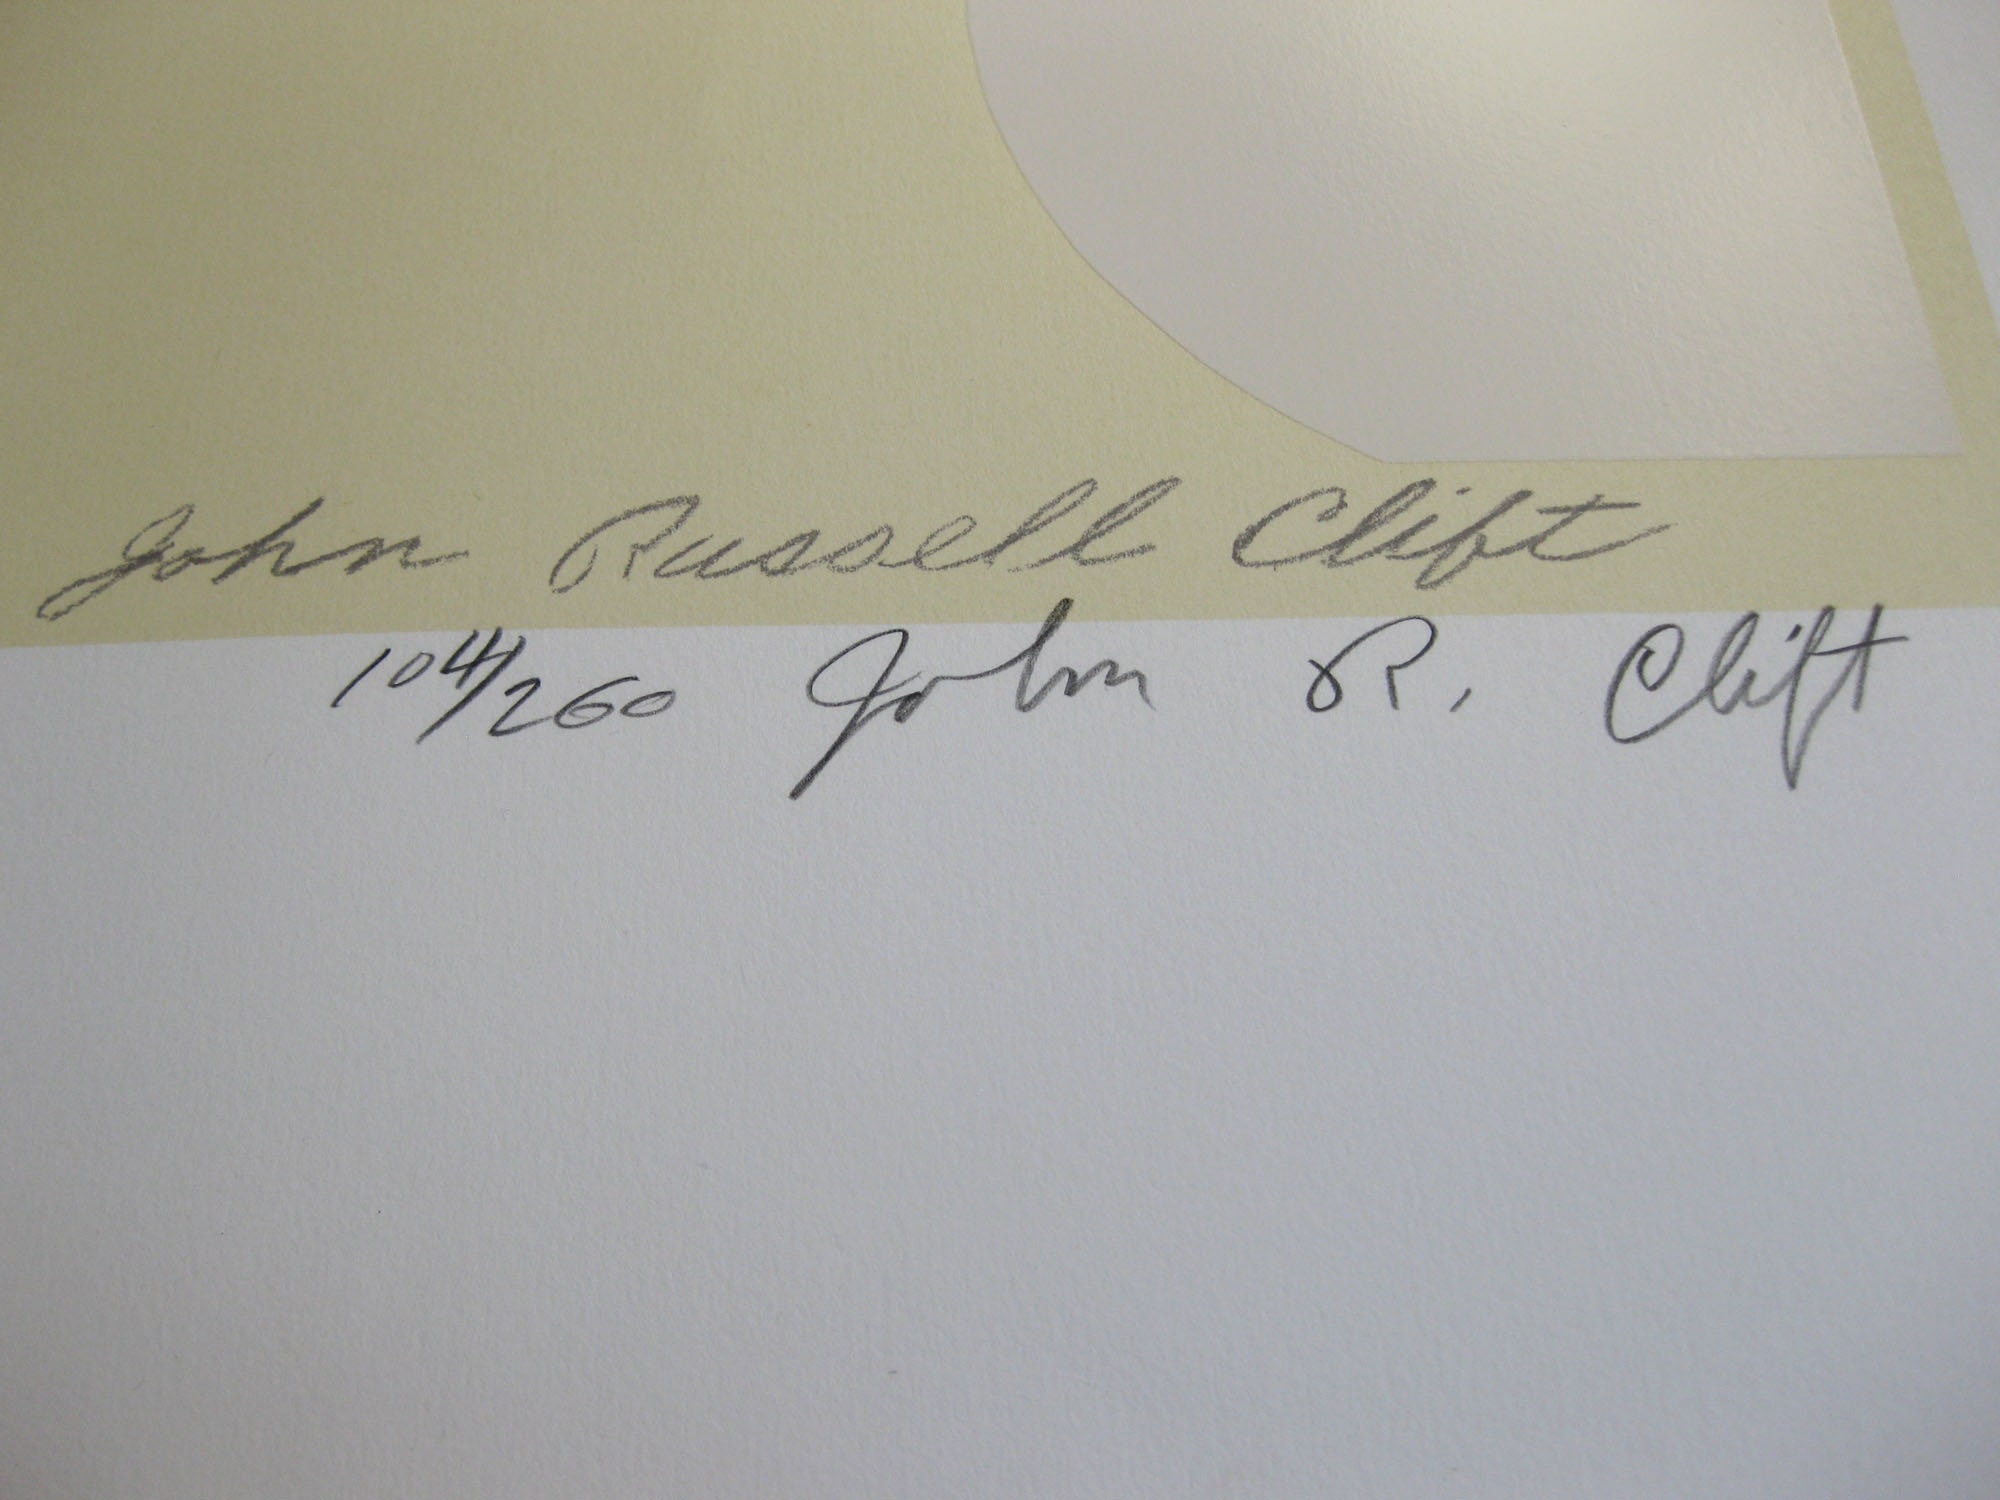 John Russell Clift
104/260 John R. Clift